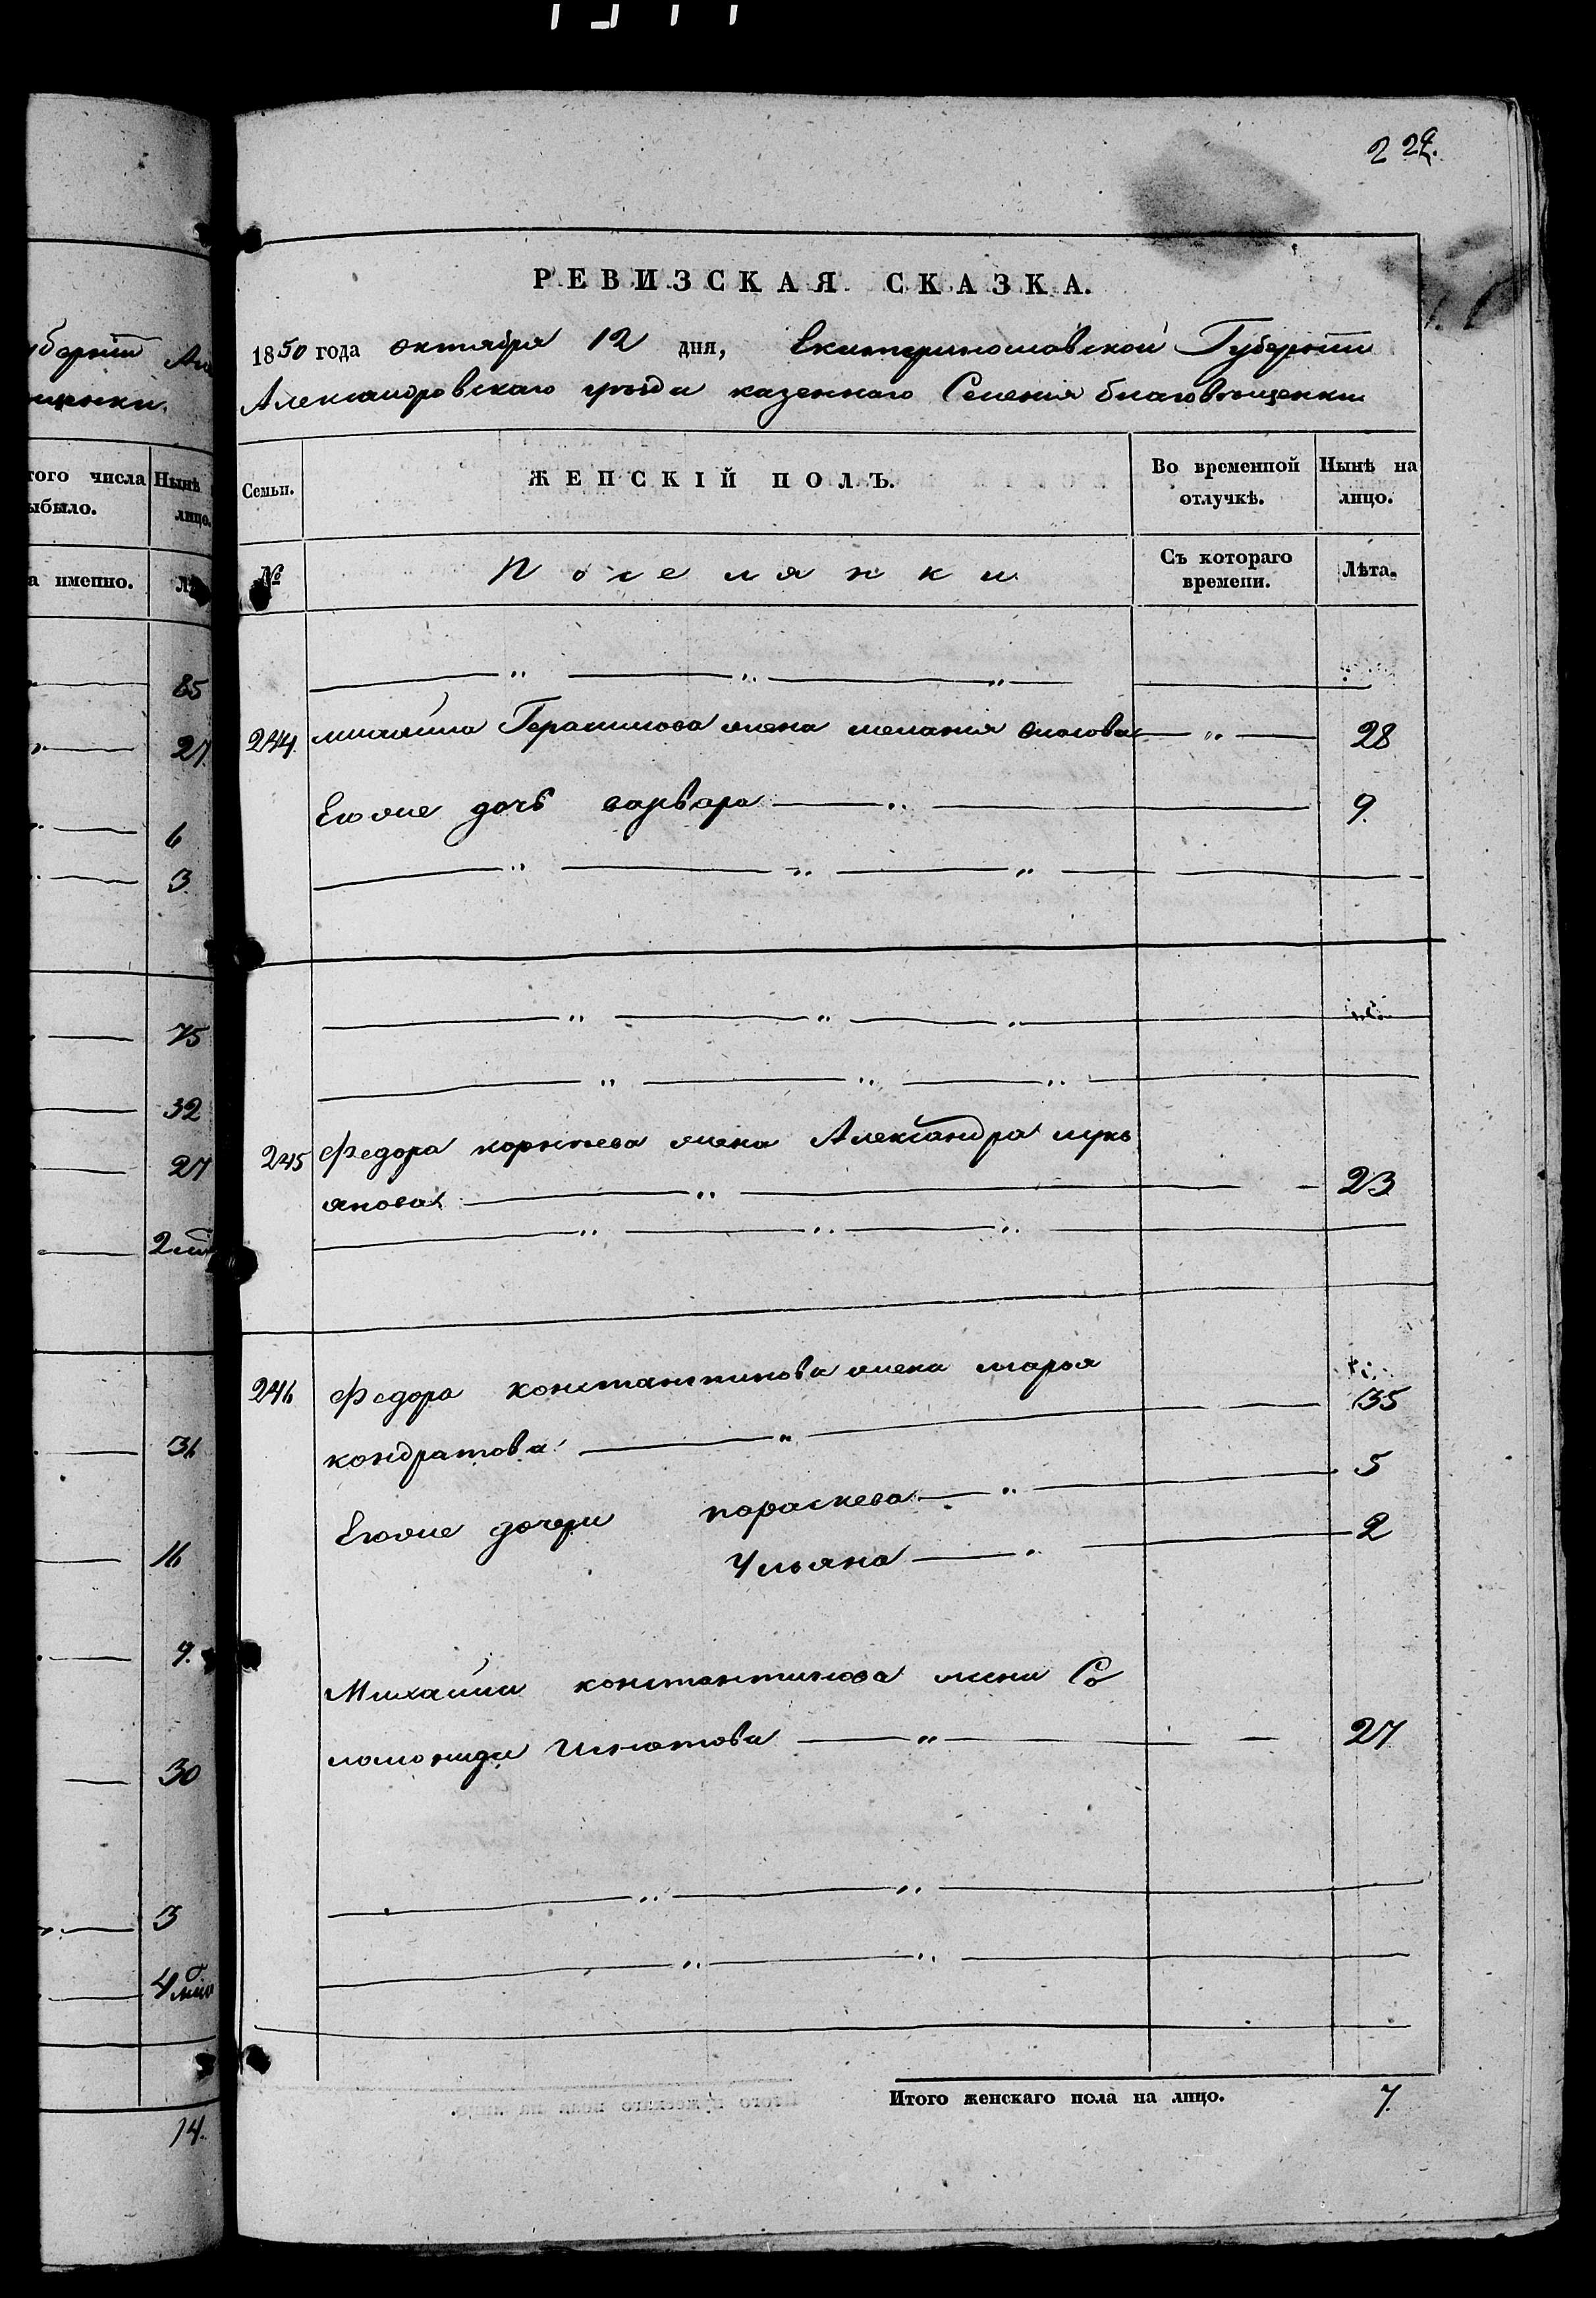 229.
РЕВИЗСКАЯ СКАЗКА.
1850 года октября 12 дня, Екатеринославской Губернии
Александровскаго уѣзда казеннаго Селения благовѣщенки
того числа Нынѣ
выбыло. лицо.
а именно.
Семьи. ЖЕНСКІЙ ПОЛЪ. Во временной отлучкѣ. Нынѣ на лицо.
№ Поселянки Съ котораго времени. Лѣта.
244 михайла Герасимова жена мелания 28
Егоже дочь варвара 9.
245 Федора корнѣева жена Александра лукь
янова 23
246 Федора константинова жена марья
кондратова 35
Егоже дочери параскева 5
Ульяна 2
Михайла константинова жена Со
ломонида Игнатова 27
Итого женскаго пола на лицо. 7.
85
27
6
3
75
32
27
31
16
9.
30
3
14.